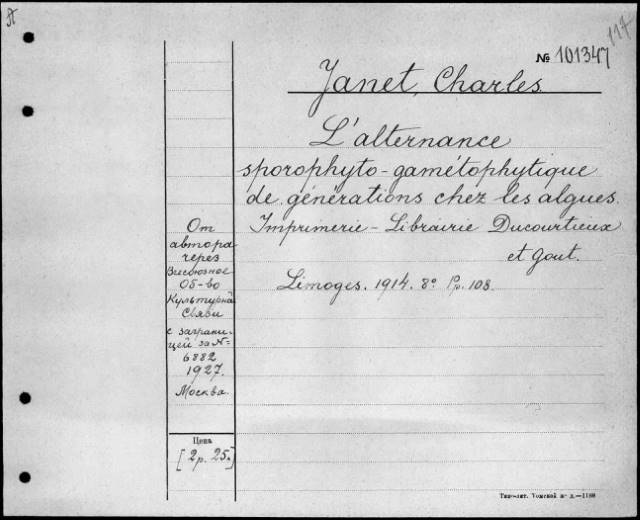 117
№ 101347
Janet, Charles
L'alternance
sporophyto-gamétophytique
de générations chez les algues.
Imprimerie-Librairie Ducourtieux
et Gout.
Limoges. 1914. 8° Pp. 108.
От
автора
через
Всесоюзное
Об-во
Культурной
Связи
с заграни-
цей за №
6882
1927.
Москва.
Цена
[2 р. 25.]
Типо-лит. Томской ж. д.—1180